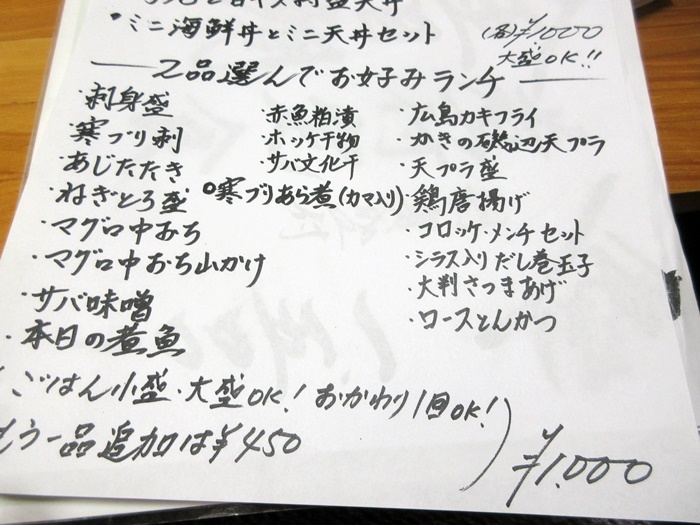 ・ミニ海鮮丼とミニ天丼セット
(各)¥1000
大盛OK!!
2品選んでお好みランチ
・刺身盛
・寒ブリ刺
・あじたたき
・ねぎとろ盛
・マグロ中おち
・マグロ中おち山かけ
・サバ味噌
・本日の煮魚
・赤魚粕漬
・ホッケ干物
・サバ文化干
○寒ブリあら煮(カマ入り)
・広島カキフライ
・かきの磯辺天プラ
・天プラ盛
・鶏唐揚げ
・コロッケ・メンチセット
・シラス入りだし巻玉子
・大判さつまあげ
・ロースとんかつ
ごはん小盛・大盛OK! おかわり1回OK!
もう一品追加は¥450)
¥1.000